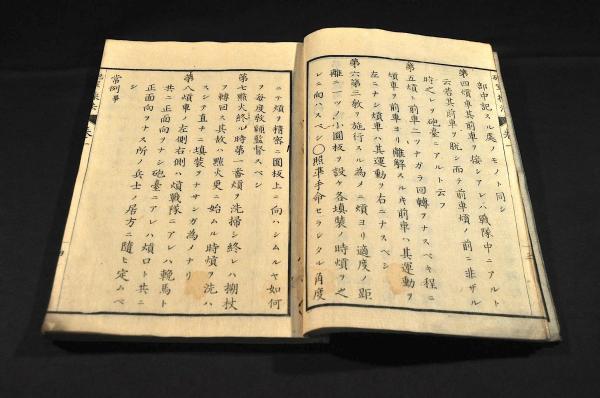 部中記スル處ノモノト同シ
第四煩車其前車ヲ接シアレハ戰隊中ニアルト
云若其前車ヲ脱シ而テ前車煩ノ前ニ非ザル
時之レヲ砲臺ニアルト云フ
第五煩ト前車ニツナガラ回轉ヲナスベキ程ニ
煩車ヲ前車ヨリ離解スルキ前車ハ其運動ヲ
左ニナシ煩車ハ其運動ヲ右ニナスベシ
第六第三敎ヲ施行スル為メニ煩ヨリ適度ノ距
離ニ一ツノ小圖板ヲ設ケ各填裝ノ時煩ヲ之
レニ向ハスベシ〇照準手命セラレタル角度
ニテ煩ヲ精密ニ圖板上ニ向ハシムルヤ如何
ヲ毎度敎頭監督スベシ
第七點火終ル時第一番煩ヲ洗掃シ終レハ搠杖
ヲ轉回ス其故ハ點火更ニ始ムル時煩ヲ洗ハ
スシテ直チニ填裝ヲナサンガ為メナリ
第八煩車ノ左側右側ハ煩戰隊ニアレハ輓馬ト
共ニ正面向ヲナシ砲臺ニアレハ煩口ト共ニ
正面向ヲナス所ノ兵士ノ居方ニ隨ヒ定ムベ
シ
常例事